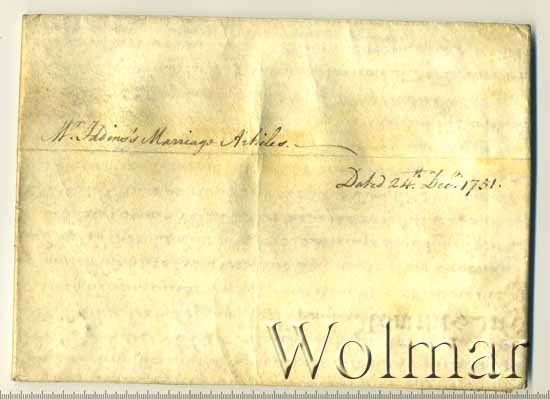 Mr. Iddino's Marriage Articles.
Dated 24th. Decr. 1751.
Wolmar